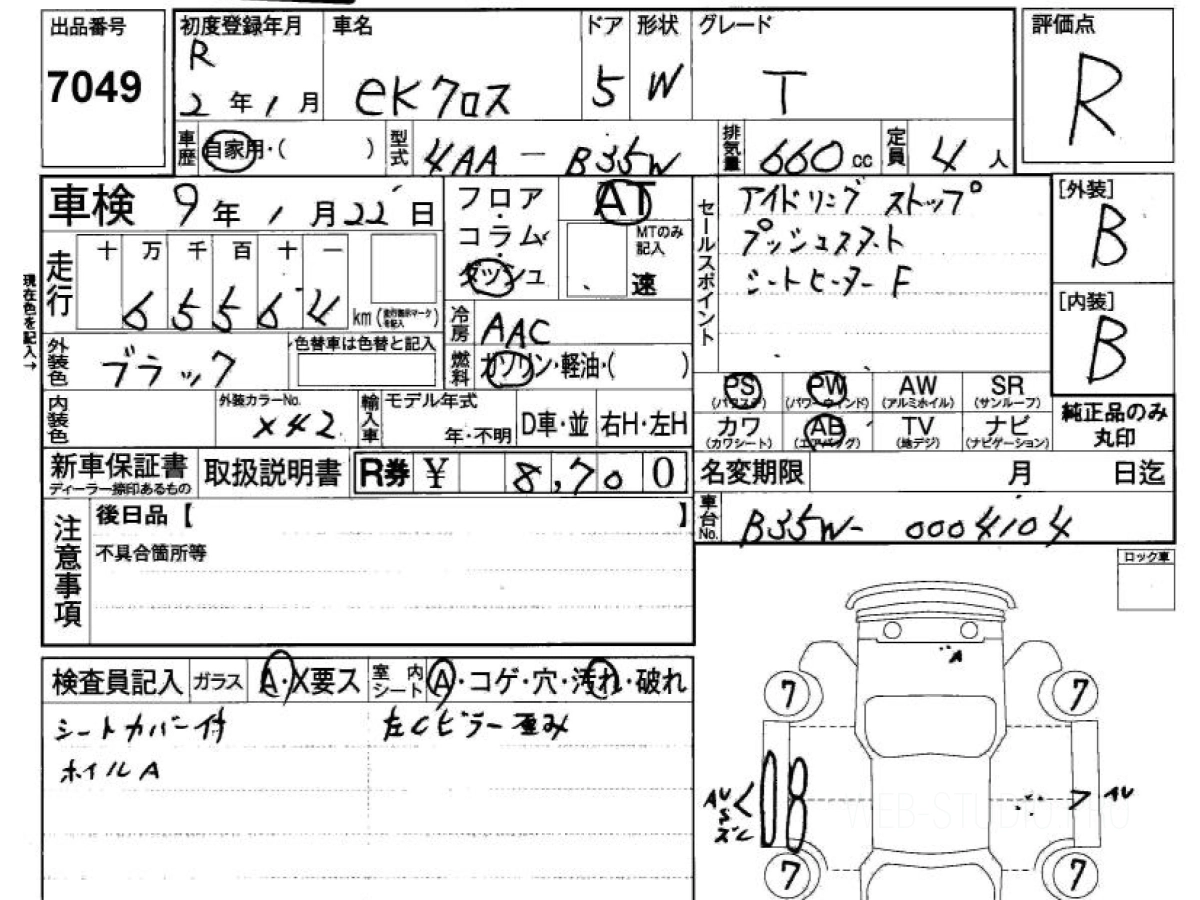 出品番号
7049
初度登録年月
R
2年1月
車名
eKクロス
ドア
5
形状
W
グレード
T
評価点
R
車歴
自家用・( )
型式
4AA-B35W
排気量
660cc
定員
4人
車検 9年1月22日
フロア・コラム・ダッシュ
AT
MTのみ記入
速
セールスポイント
アイドリングストップ
プッシュスタート
シートヒーターF
[外装]
B
[内装]
B
現在色を記入→
走行
十 万 千 百 十 一
6 5 5 6 4 km (走行表示マークを記入)
冷房
AAC
外装色
ブラック
色替車は色替と記入
燃料
ガソリン・軽油・( )
PS (パワステ)
PW (パワーウインド)
AW (アルミホイル)
SR (サンルーフ)
カワ (カワシート)
AB (エアバッグ)
TV (地デジ)
ナビ (ナビゲーション)
純正品のみ丸印
内装色
外装カラーNo.
X42
輸入車
モデル年式
年・不明
D車・並
右H・左H
新車保証書
ディーラー捺印あるもの
取扱説明書
R券 ¥ 8,700
名変期限 月 日迄
車台No.
B35W-0004104
注意事項
後日品【 】
不具合箇所等
ロック車
検査員記入
ガラス
A・X要ス
室内シート
A・コゲ・穴・汚れ・破れ
シートカバー付
左Cピラー歪み
ホイルA
A
7
7
AU
S
ズレ
AU
7
7
WEB-STUDIO.PRO